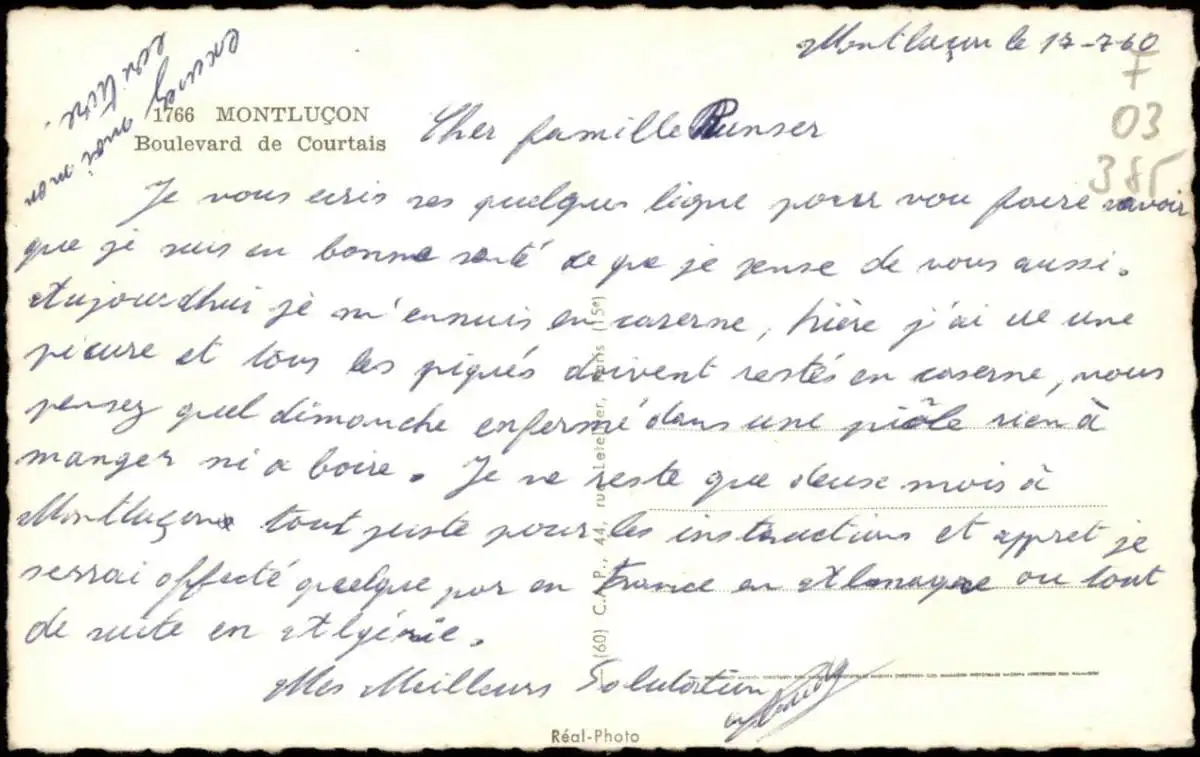 Montluçon le 17-7-60
F
03
385
excusez moi mon
ecriture.
1766 MONTLUÇON
Boulevard de Courtais
Cher famille Runser
Je vous ecris ses quelques ligne pour vou faire savoir
que je suis en bonne santé ce que je pense de vous aussi.
Aujourdhui je m'ennuis en caserne, hière j'ai ue une
picure et tous les piqués doivent restés en caserne, vous
pensez quel dimanche enfermé dans une piôle rien à
manger ni a boire. Je ne reste que deux mois à
Montluçon tout juste pour les instructions et appret je
serrai affecté quelque par en France en Almagne ou tout
de suite en Algérie.
Mes Meilleurs Salutation
(60) C.A.P., 44, rue Letellier, Paris (15e)
Réal-Photo